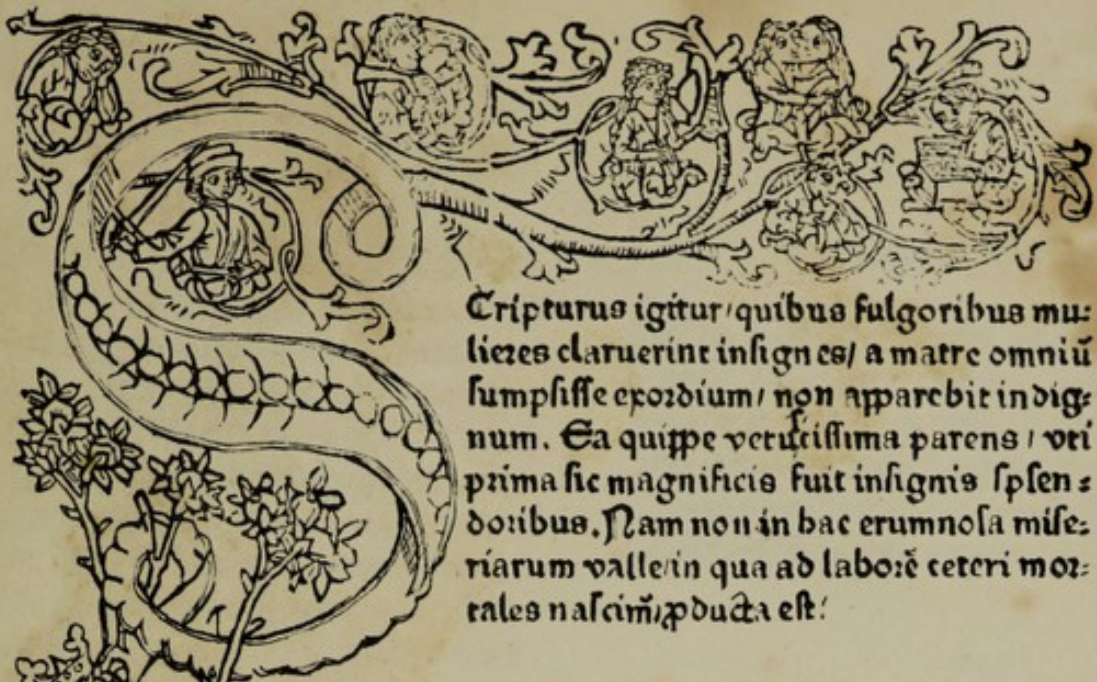 Scripturus igitur/quibus fulgoribus mu:
lieres claruerint insignes/ a matre omniū
sumpsisse exordium/ non apparebit indig:
num. Ea quippe vetustissima parens/ vti
prima sic magnificis fuit insignis splen:
doribus. Nam non in hac erumnosa mise:
riarum valle/in qua ad laborē ceteri mor:
tales nascim̄/ ꝓducta est: